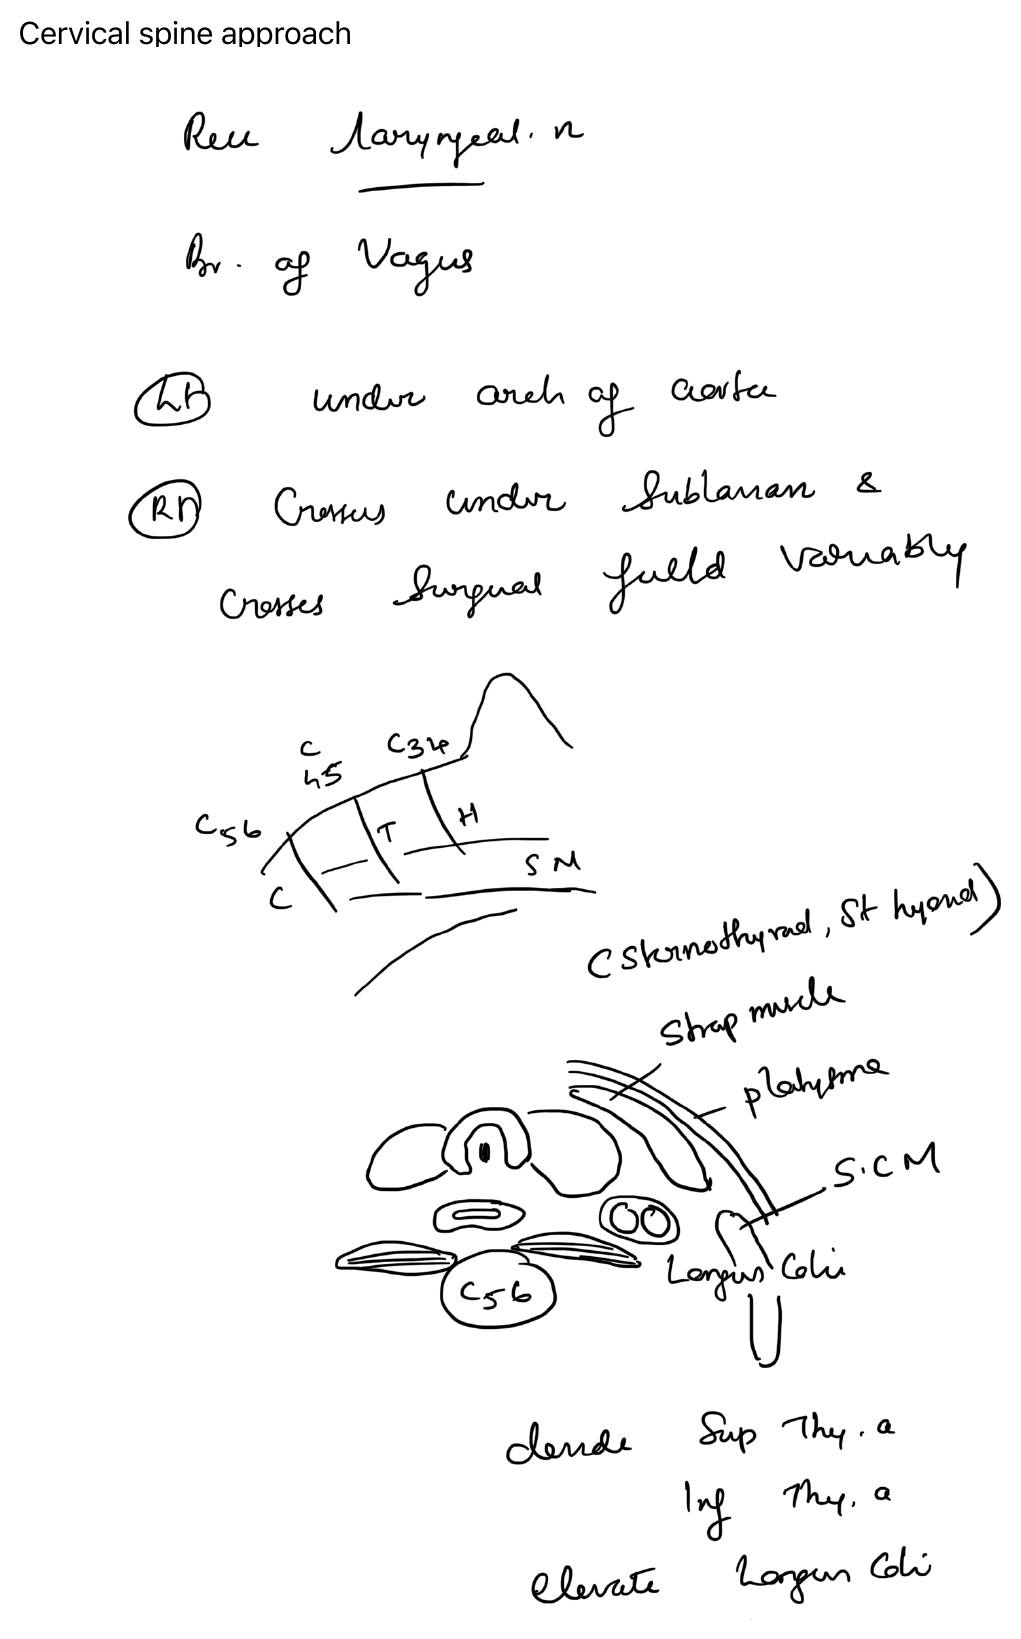 Cervical spine approach
Rec laryngeal. n
Br. of Vagus
Lt under arch of aorta
Rt Crosses under Subclavian &
Crosses Surgical field variably
C34
C
45
C56
H
T
S M
C
(Sternothyroid, St hyoid)
Strap muscle
platysma
S.C M
Longus Coli
C56
Sup Thy. a
Inf Thy. a
elevate Longus Coli